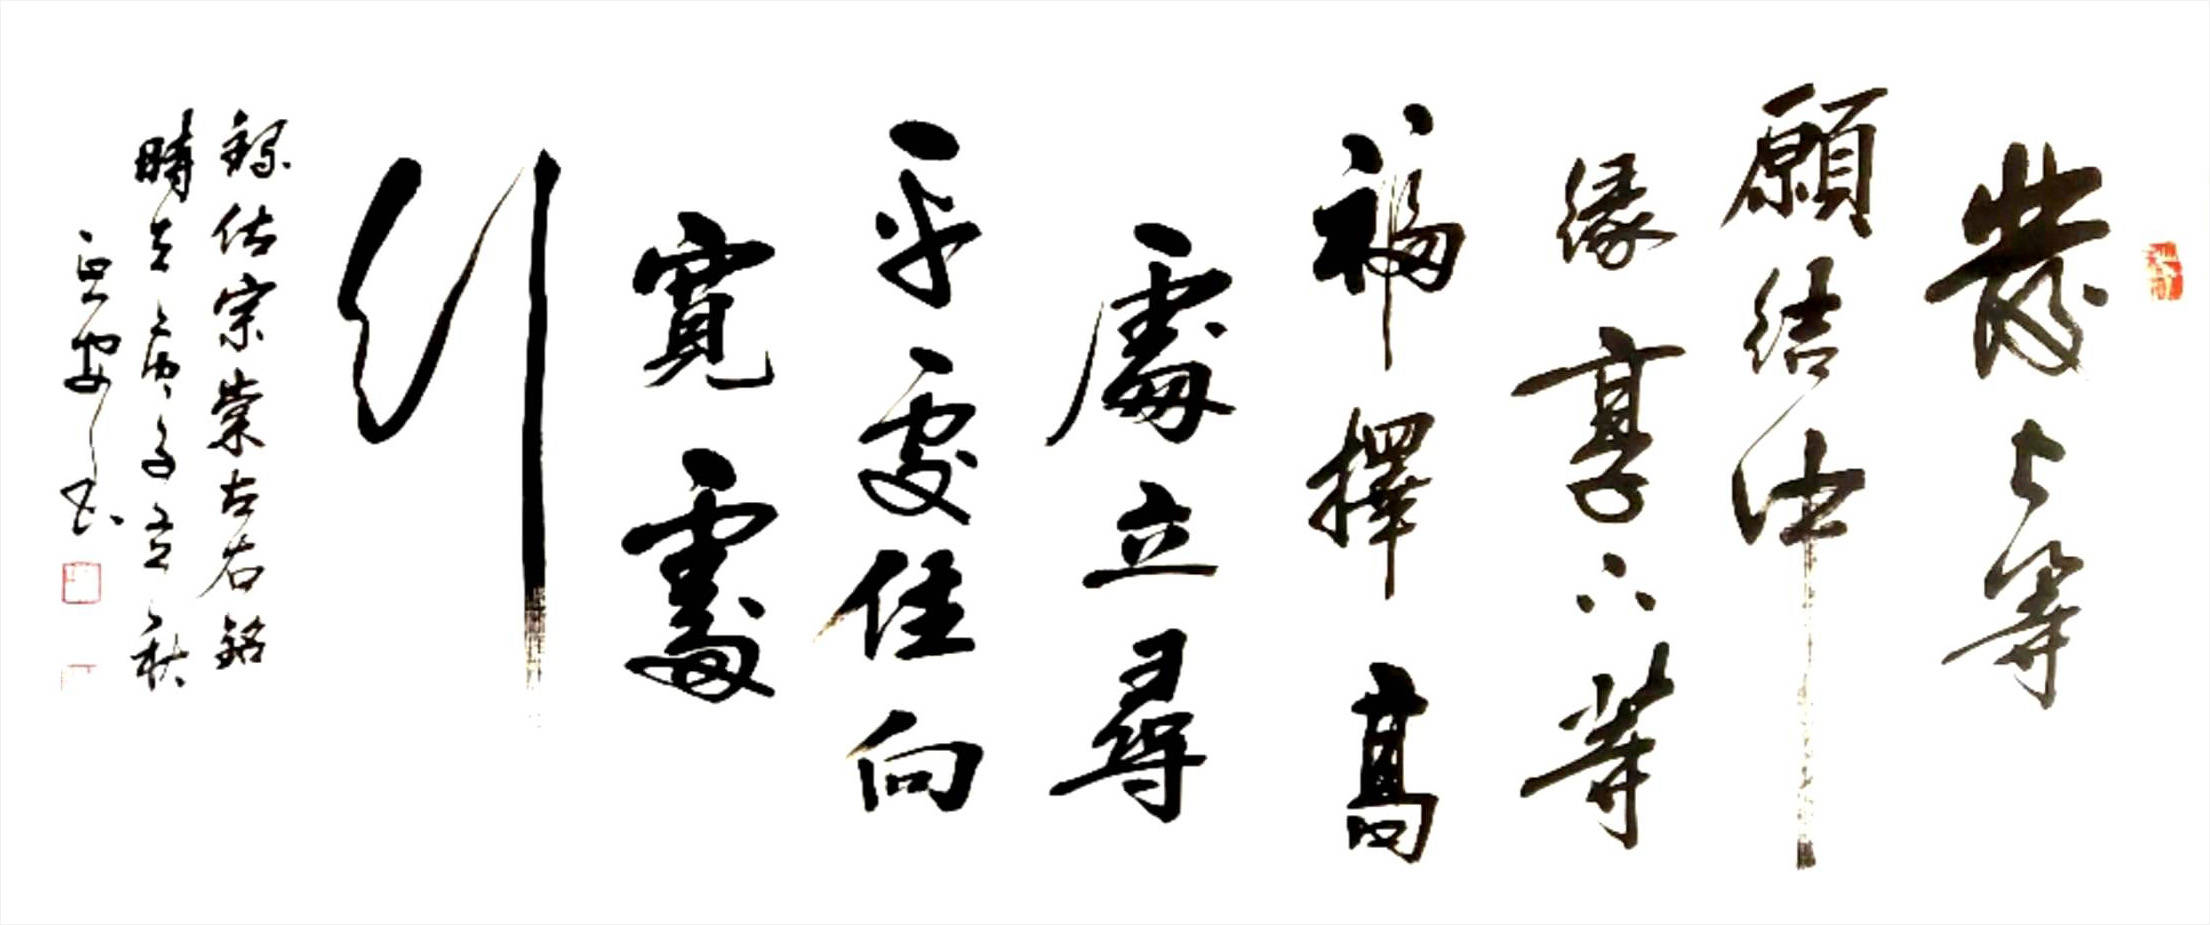 發上等
願結中
緣享下等
福擇高
處立尋
平處住向
寬處
行
錄佐宗棠左右銘
時在庚子立秋
安書